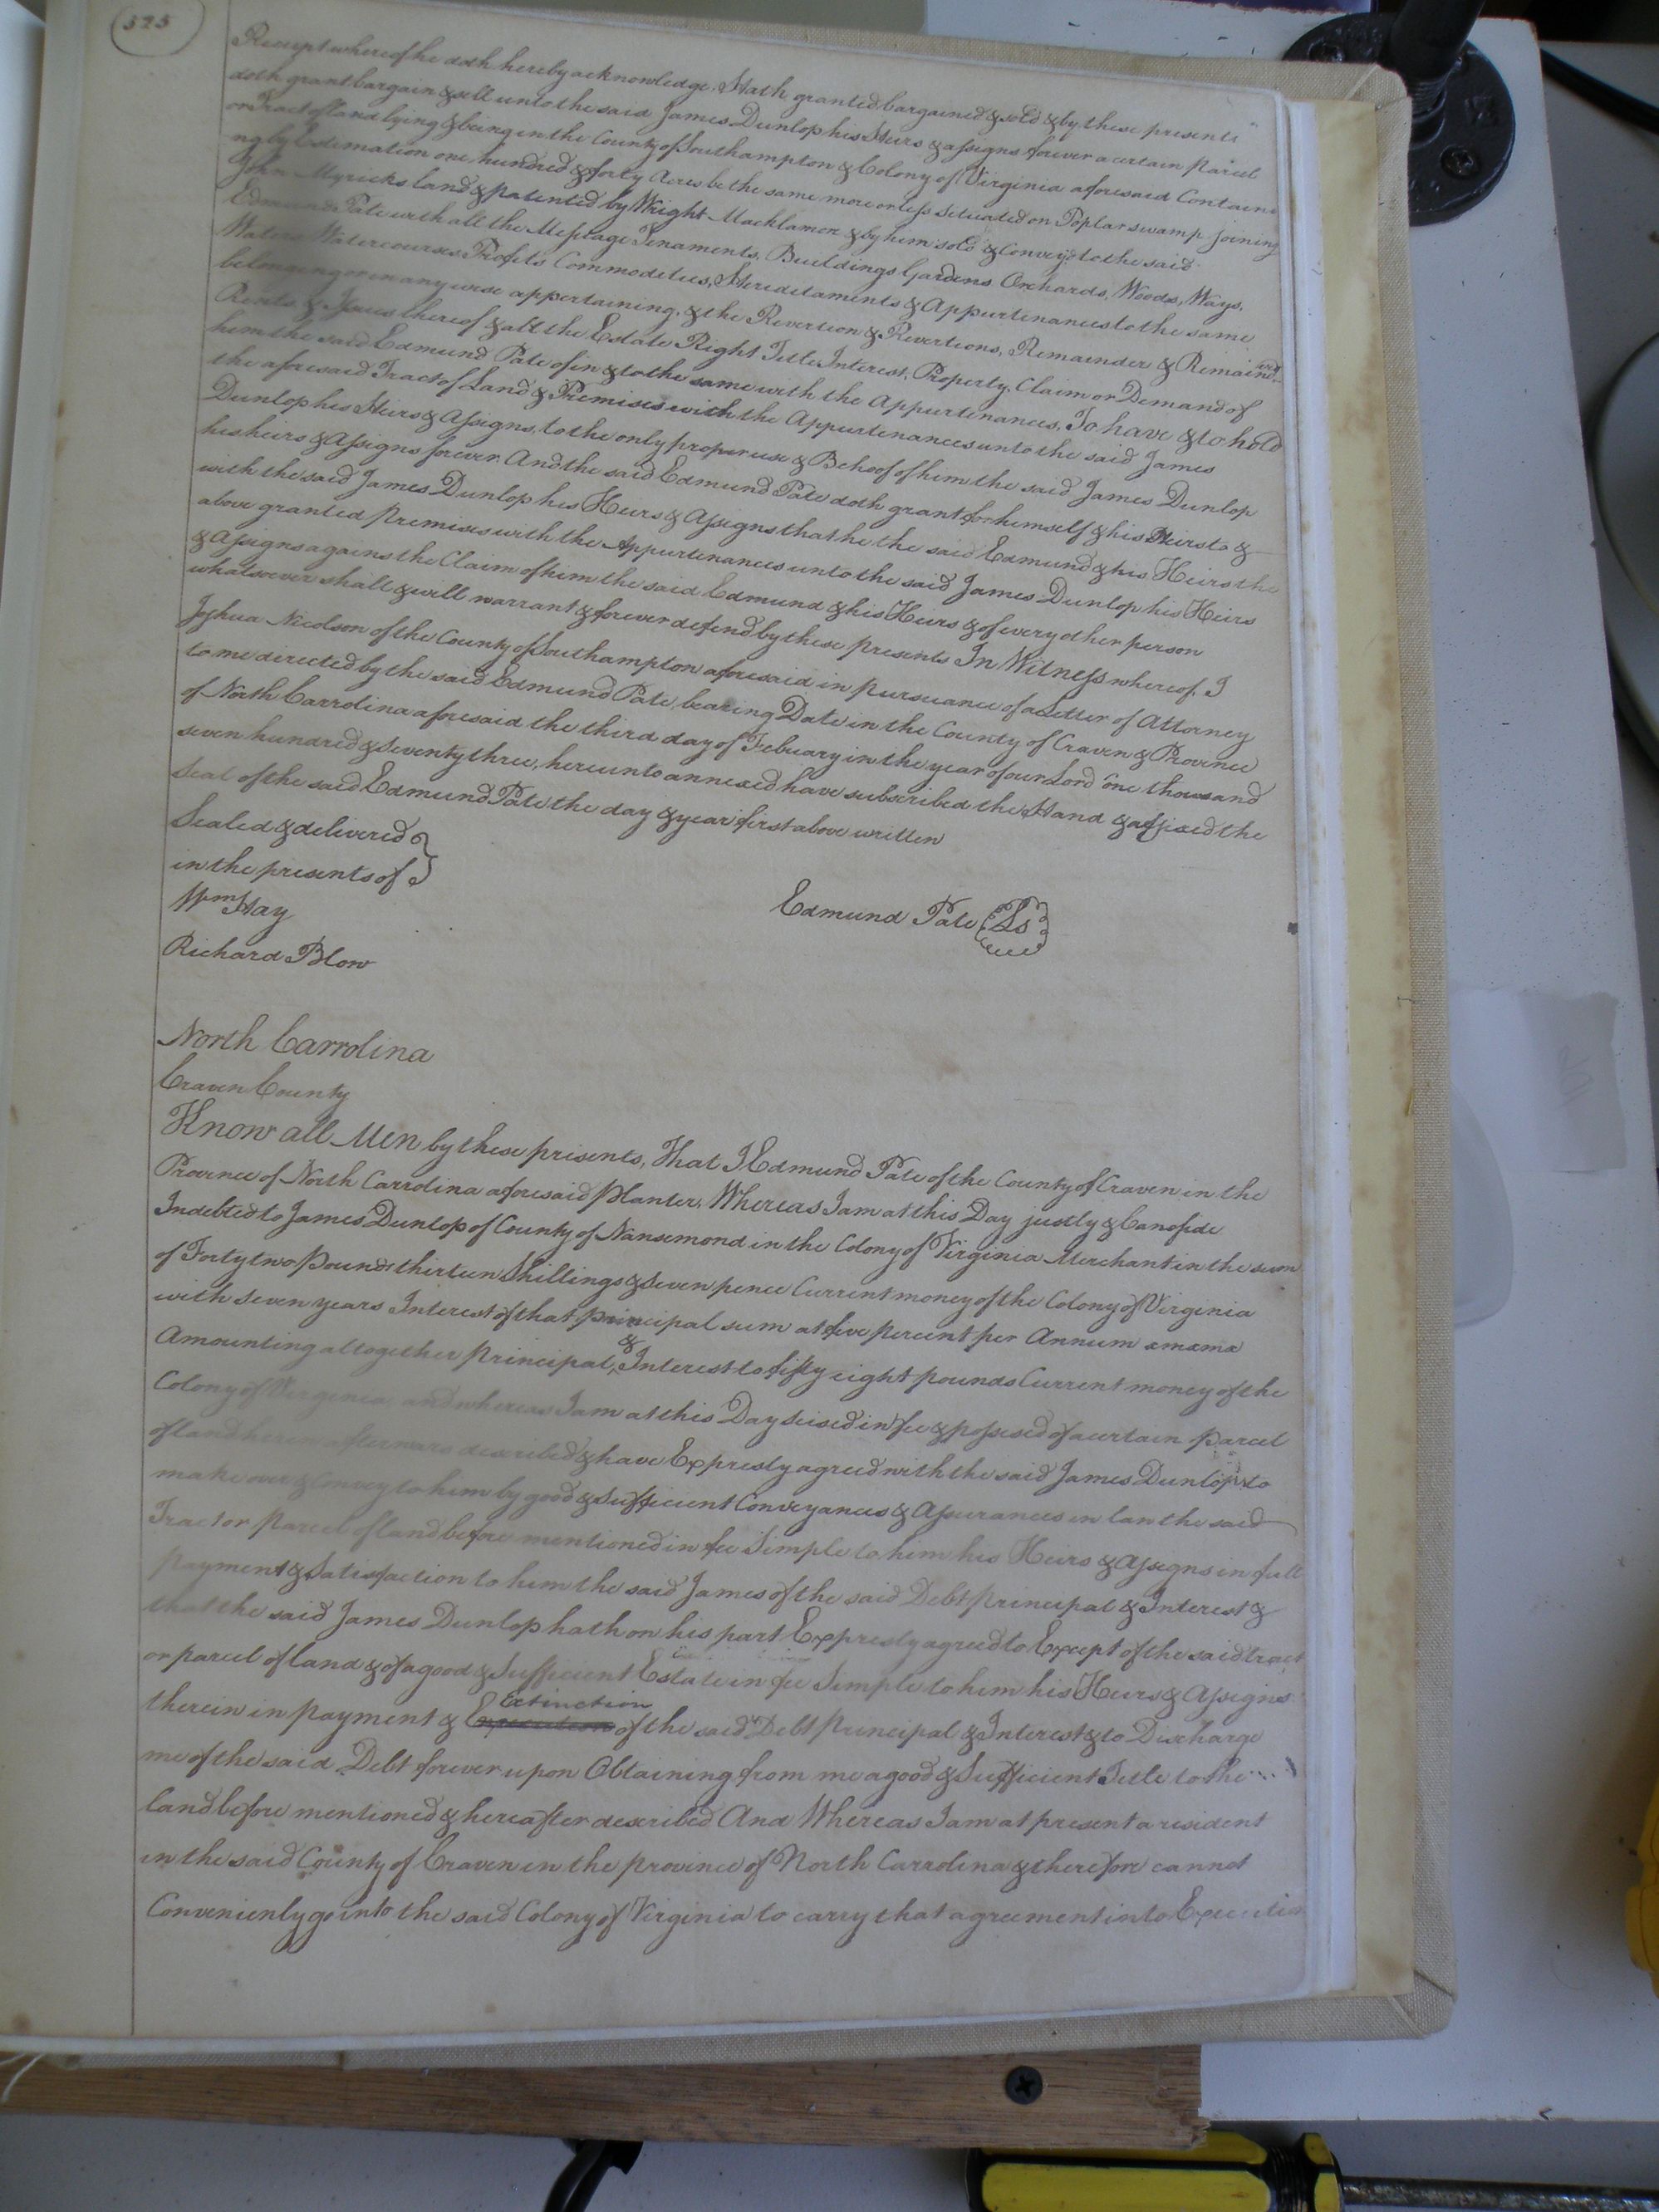 525
Receipt whereof he doth hereby acknowledge. Hath granted bargained & sold & by these presents
doth grant bargain & sell unto the said James Dunlop his Heirs & assigns forever a certain parcel
or Tract of land lying & being in the County of Southampton & Colony of Virginia aforesaid Containi
ng by Estimation one hundred & forty Acres be the same more or less situated on Poplar swamp joining
John Myricks land & patented by Wright Macklamore & by him sold & Convey'd to the said
Edmund Pate with all the Messuage Tenaments, Buildings Gardens Orchards, Woods, Ways,
Waters Watercourses Profits Commodeties, Hereditaments & Appurtenances to the same
belonging or in any wise appertaining, & the Revertion & Revertions, Remainder & Remainders
Rents & Issues thereof & all the Estate Right Title Interest, Property, Claim or Demand of
him the said Edmund Pate of in & to the same with the Appurtenances, To have & to hold
the aforesaid Tract of Land & Premises with the Appurtenances unto the said James
Dunlop his Heirs & Assigns, to the only proper use & Behoof of him the said James Dunlop
his heirs & Assigns forever. And the said Edmund Pate doth grant for himself & his Heirs to &
with the said James Dunlop his Heirs & Assigns that he the said Edmund & his Heirs the
above granted premises with the Appurtenances unto the said James Dunlop his Heirs
& Assigns against the Claim of him the said Edmund & his Heirs & of every other person
whatsoever shall & will warrant & forever defend by these presents In Witness whereof, I
Joshua Nicolson of the County of Southampton aforesaid in pursuance of a Letter of Attorney
to me directed by the said Edmund Pate, bearing Date in the County of Craven & Province
of North Carrolina aforesaid the third day of Febuary in the year of our Lord one thousand
seven hundred & seventy three, hereunto annexed have subscribed the Hand & affixed the
Seal of the said Edmund Pate the day & year first above written
Sealed & delivered
in the presents of
Edmund Pate Ls
Wm Hay
Richard Blow
North Carrolina
Craven County
Know all Men by these presents, That I Edmund Pate of the County of Craven in the
Province of North Carrolina aforesaid planter, Whereas I am at this Day justly & banofide
Indebted to James Dunlop of County of Nansemond in the Colony of Virginia Merchant in the sum
of Forty two pounds thirteen Shillings & Seven pence Current money of the Colony of Virginia
with Seven years Interest of that principal sum at five percent per Annum
Amounting altogether principal, & Interest to fifty eight pounds Current money of the
Colony of Virginia and whereas I am at this Day seised in fee & possesed of a certain parcel
of land herein afterwars described & have Expresly agreed with the said James Dunlop to
make over & Convey to him by good & Sufficient Conveyances & Assurances in law the said
Tract or parcel of land before mentioned in fee Simple to him his Heirs & Assigns in full
payment & Satisfaction to him the said James of the said Debt principal & Interest &
that the said James Dunlop hath on his part Expresly agreed to Except of the said tract
or parcel of land & of a good & Sufficient Estate in fee Simple to him his Heirs & Assigns
therein in payment & Extinction of the said Debt principal & Interest & to Discharge
me of the said Debt forever upon Obtaining from me a good & Sufficient Title to the
land before mentioned & hereafter described And Whereas I am at present a resident
in the said County of Craven in the province of North Carrolina & therefore cannot
Conveniently go into the said Colony of Virginia to carry that agreement into Execution